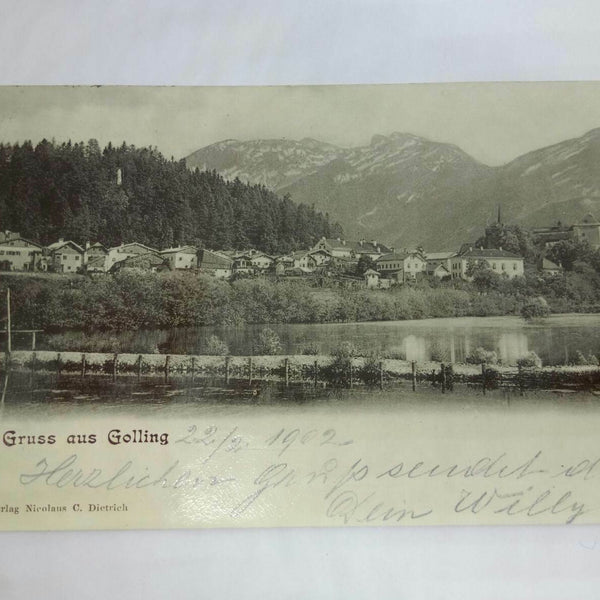 Gruss aus Golling 22/2 1902
Herzlichen Gruß sendet d
Dein Willy
rlag Nicolaus C. Dietrich